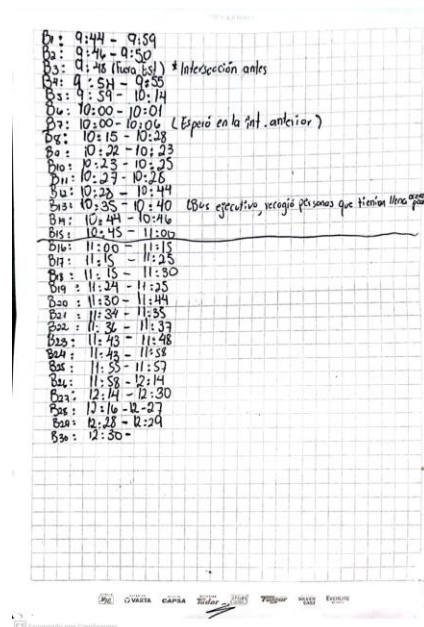 B1: 9:44 - 9:59
B2: 9:46 - 9:50
B3: 9:48 (Fuera Est) * Intersección antes
B4: 9:54 - 9:55
B5: 9:59 - 10:14
B6: 10:00 - 10:01
B7: 10:00 - 10:06 (Esperó en la int. anterior)
B8: 10:15 - 10:28
B9: 10:22 - 10:23
B10: 10:23 - 10:25
B11: 10:27 - 10:28
B12: 10:28 - 10:44
B13: 10:35 - 10:40 (Bus ejecutivo, recogió personas que tienian llena
B14: 10:44 - 10:46
B15: 10:45 - 11:00
B16: 11:00 - 11:15
B17: 11:15 - 11:25
B18: 11:15 - 11:30
B19: 11:24 - 11:25
B20: 11:30 - 11:44
B21: 11:34 - 11:35
B22: 11:36 - 11:37
B23: 11:43 - 11:48
B24: 11:43 - 11:58
B25: 11:55 - 11:57
B26: 11:58 - 12:14
B27: 12:14 - 12:30
B28: 12:16 - 12-27
B29: 12:28 - 12:29
B30: 12:30 -
VASTA CAPSA Tudor SILVER CAST EVERLITE